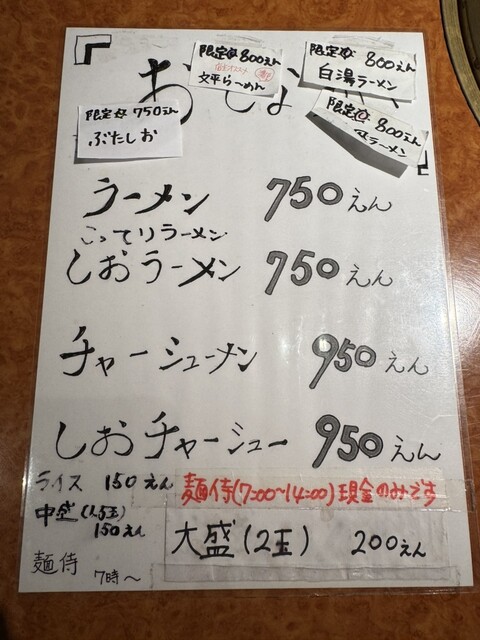 限定食 800えん
文平らーめん
限定食 800えん
白湯ラーメン
限定食 750えん
ぶたしお
限定食 800えん
ラーメン
おしな
ラーメン 750えん
こってりラーメン
しおラーメン 750えん
チャーシューメン 950えん
しおチャーシュー 950えん
ライス 150えん
麺侍(7:00~14:00)現金のみです
中盛(1.5玉)
150えん
大盛(2玉) 200えん
麺侍 7時~